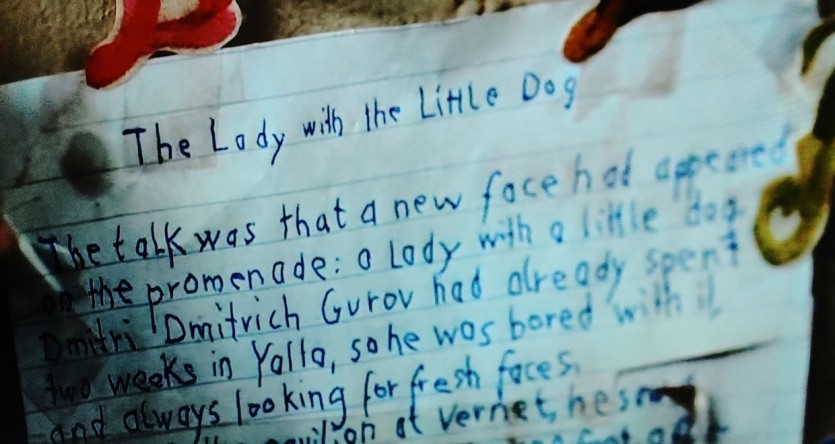 The Lady with the Little Dog
The talk was that a new face had appeared
on the promenade: a Lady with a little dog.
Dmitri Dmitrich Gurov had already spent
two weeks in Yalla, so he was bored with it,
and always looking for fresh faces.
at Vernet, he